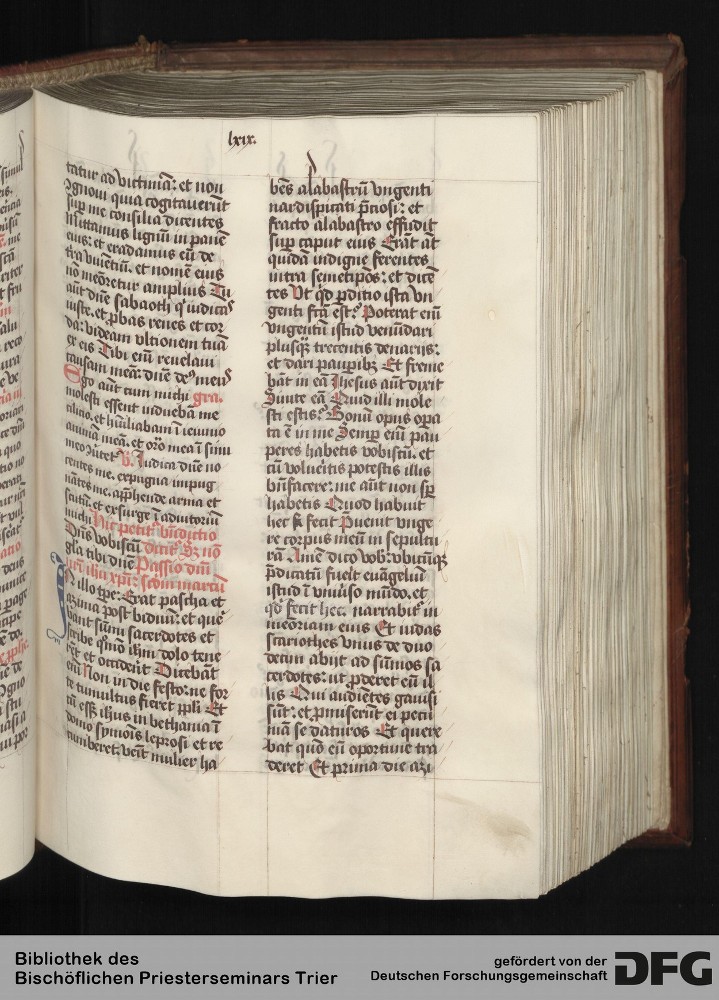 lxix.
tatur ad victimā: et non
ꝯgnoui quia cogitauerūt
sup me consilia dicentes
Mittamus lignū in panē
eius: et eradamus eū de
tͬra viuētiū. et nomē eius
nō meōretur amplius Tu
aūt dn̄e sabaoth qͥ iudicas
iuste. et ꝓbas renes et cor
da: videam vltionem tuā
ex eis Tibi enī reuelaui
causam meā: dn̄e deꝰ meus
Ego aūt cum michi gra.
molesti essent īduebā me
cilicio. et hūiliabam ī ieiunio
animā meā. et orō mea ī sinu
meo ꝯūtet᷑ v̄. Iudica dn̄e no
centes me. expugna impug
nātes me. app̄hende arma et
scutū. et exsurge ī adiutoriū
michi Nō petit᷑ bn̄dictio
Dn̄s vobiscū dicit᷑ Sꝫ nō
gl̄a tibi dn̄e Passio dn̄i
nr̄i ihū xp̄i: scdm marcū
In illo tp̄e: Erat pascha et
azima post biduū: et que
bant sūmi sacerdotes et
scribe qͦmō ih̄m dolo tene
rēt et occiderēt Dicebāt
enī Non in die festo: ne for
te tumultus fieret ppl̄i Et
cū ess̄ ihūs in bethania ī
domo symonis leprosi et re
cumberet. venit mulier ha
bēs alabastrū vngenti
nardi spicati p̄ciosi: et
fracto alabastro effudit
sup caput eius Erāt aūt
quidā indigne ferentes
intra semetip̄os: et dicē
tes Vt qͥd ꝑditio ista vn
genti fcā est? Poterat enī
vngentū istud venūdari
plusqͣꝫ trecentis denarijs:
et dari paupibꝫ Et freme
bāt in eā Ihesus aūt dixit
Sinite eā Quid illi mole
sti estis? Bonū opus opa
ta ē in me Semp enī pau
peres habetis vobiscū. et
cū volueritis potestis illis
bn̄facere: me aūt non sp̄
habetis Quod habuit
hec fecit Preuenit vnge
re corpus meū in sepultu
rā Amē dico vob: vbicūqꝫ
p̄dicatū fuerit euāgeliū
istud ī vniuerso mūdo. et
qd̄ fecit hec. narrabit᷑ in
meōriam eius Et iudas
scariothes vnus de duo
decim abijt ad sūmos sa
cerdotes: ut ꝓderet eū il
lis Qui audiētes gauisi
sūt: et ꝓmiserūt ei pecu
niā se daturos Et quere
bat quō eū oportune tra
deret Et prima die azi
Bibliothek des
Bischöflichen Priesterseminars Trier
gefördert von der
Deutschen Forschungsgemeinschaft
DFG